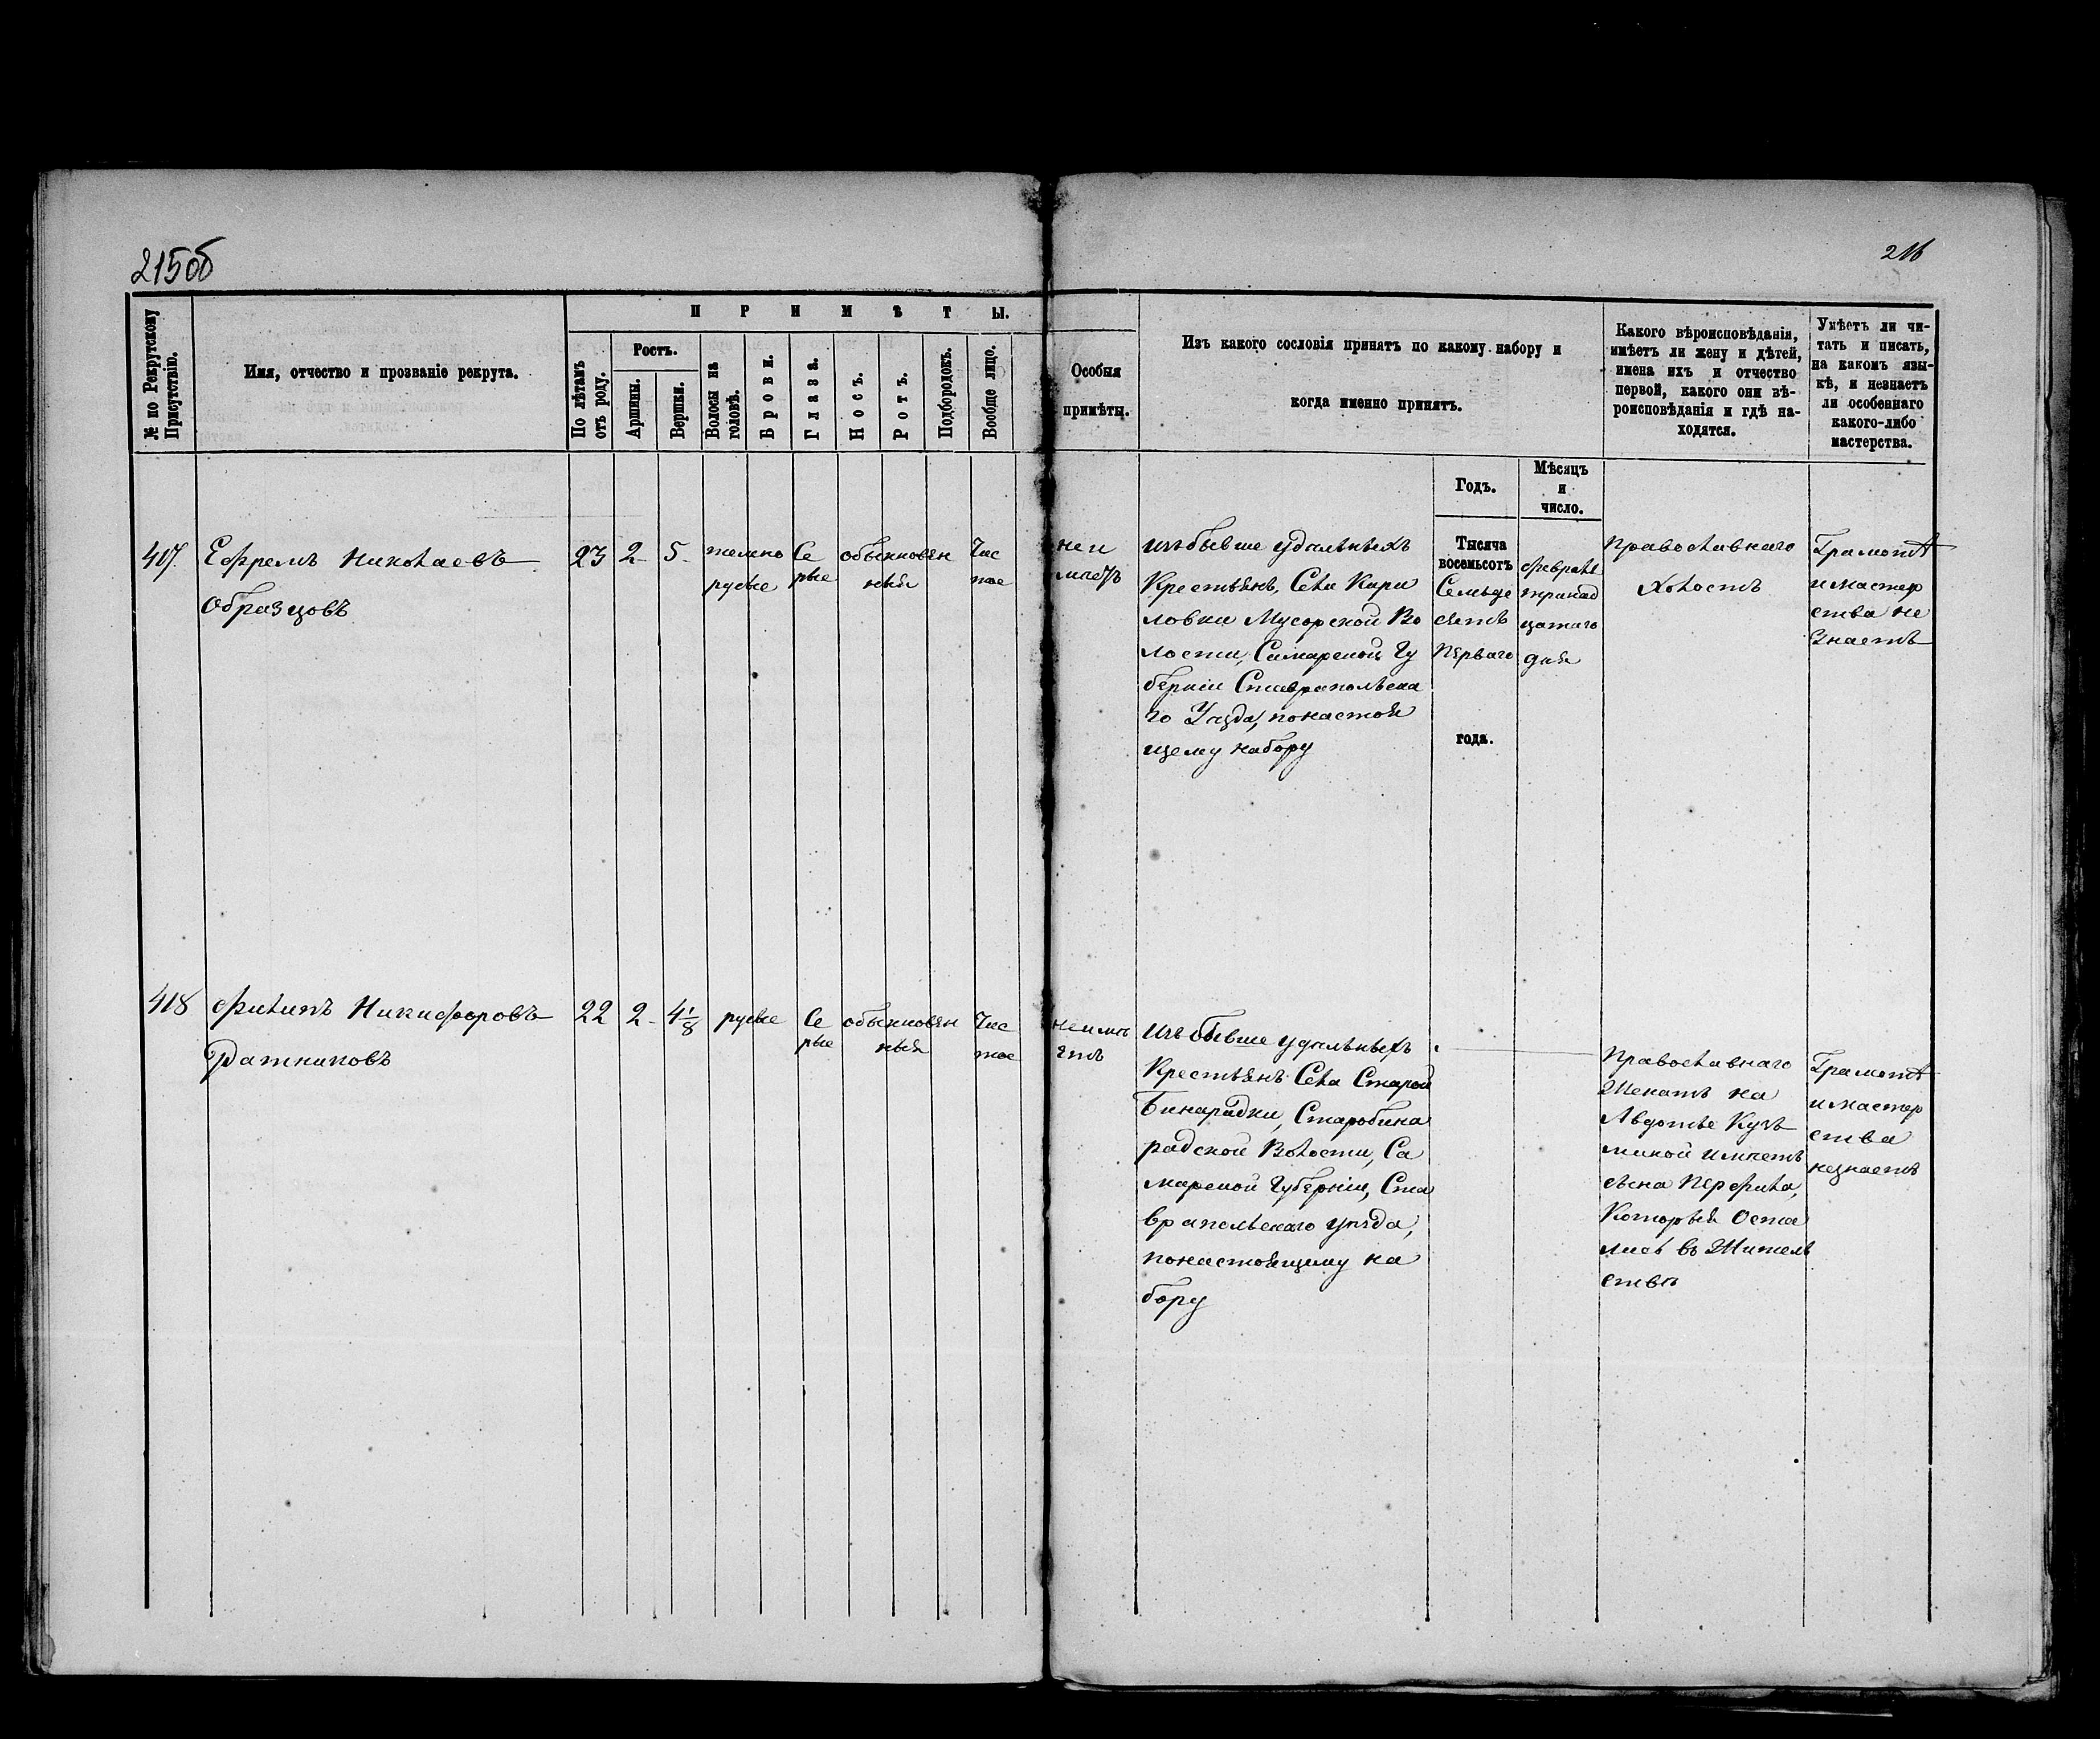 215об
216
№ по Рекрутскому
Присутствію.
Имя, отчество и прозваніе рекрута.
ПРИМѢТЫ.
По лѣтамъ
отъ роду.
Ростъ.
Аршины.
Вершки.
Волосы на
головѣ.
Брови.
Глаза.
Носъ.
Ротъ.
Подбородокъ.
Вообще лицо.
Особыя
примѣты.
Изъ какого сословія принятъ по какому набору и
когда именно принятъ.
Какого вѣроисповѣданія,
имѣетъ ли жену и дѣтей,
имена ихъ и отчество
первой, какого они вѣ-
роисповѣданія и гдѣ на-
ходятся.
Умѣетъ ли чи-
тать и писать,
на какомъ язы-
кѣ, и незнаетъ
ли особеннаго
какого-либо
мастерства.
Годъ.
Мѣсяцъ
и
число.
417
Ефремъ Николаевъ
Образцовъ
23
2
5
темно
русые
Се
рые
обыкновен
ныя
Чис
тое
не и
мѣетъ
Изъ бывше удѣльныхъ
Крестьянъ, Села Кири
ловки Мусорской Во
лости, Самарской Гу
берніи Ставропольска
го Уѣзда, по настоя
щему набору
Тысяча
восемьсотъ
Семьде
сятъ
Перваго
года.
Февраля
тринад
цатаго
дня
Православнаго
Холостъ
Грамотѣ
и мастер
ства не
знаетъ
418
Филипъ Никифоровъ
Ратниковъ
22
2
4 1/8
русые
Се
рые
обыкновен
ныя
Чис
тое
не имѣ
етъ
Изъ бывше удѣльныхъ
Крестьянъ Села Старой
Бинарадки, Старобина
радской Волости, Са
марской Губерніи, Ста
вропольскаго уѣзда,
по настоящему на
бору
Православнаго
Женатъ на
Авдотье Кузь
миной имѣетъ
сына Перфила,
Которыя Оста
лись въ Житель
ствѣ
Грамотѣ
и мастер
ства
незнаетъ